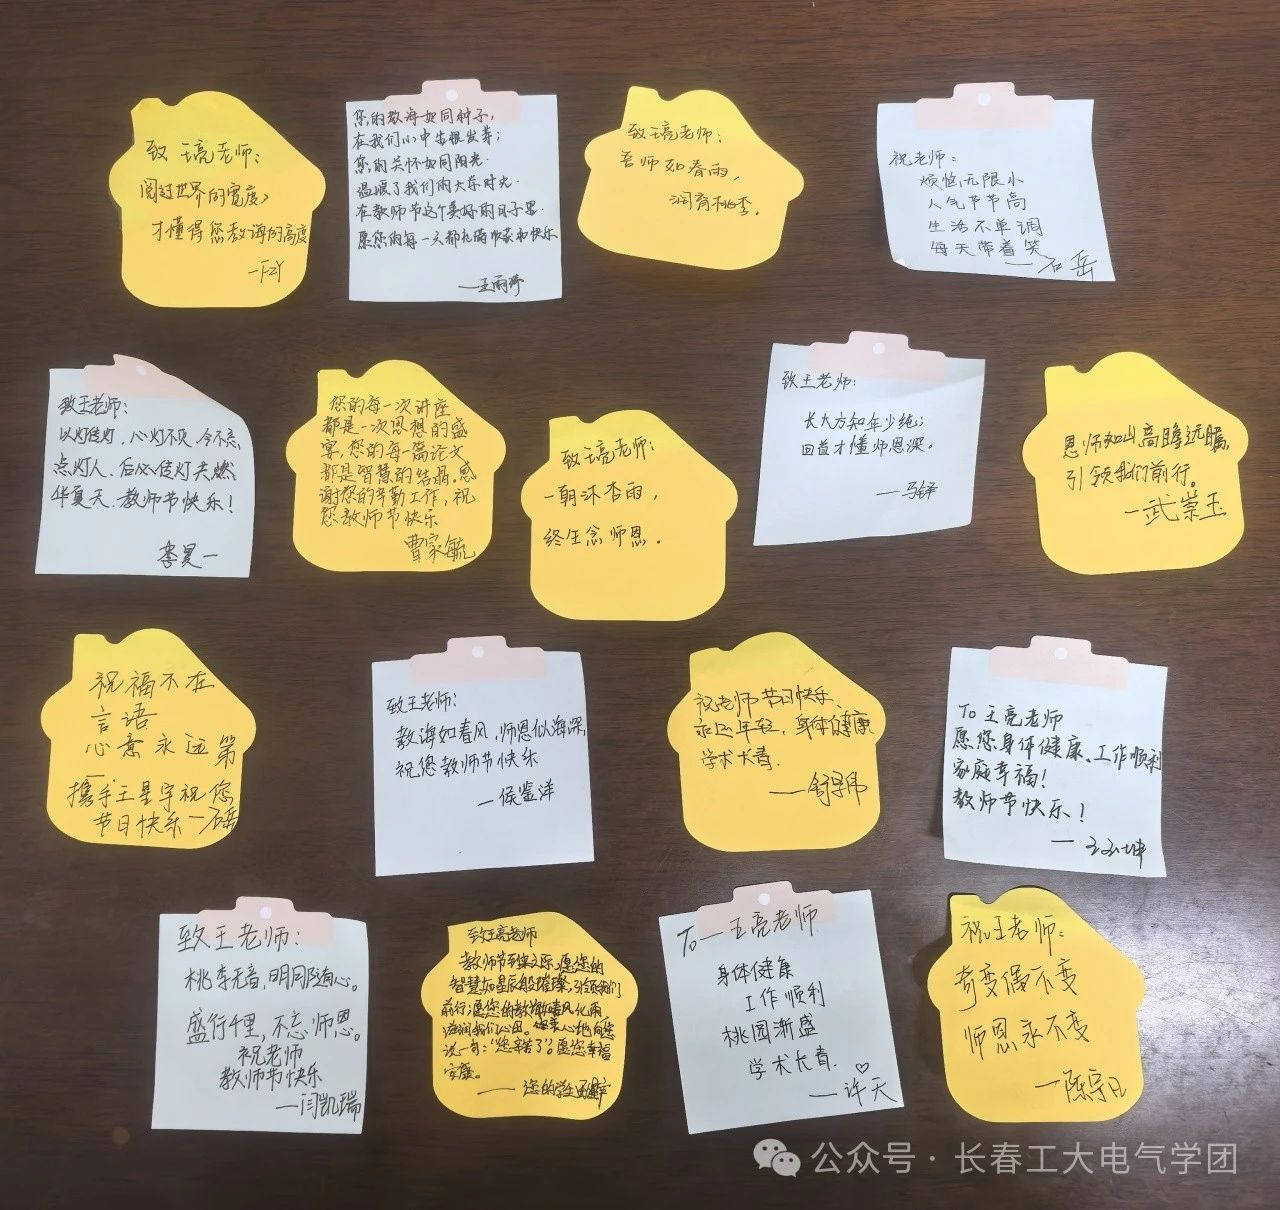 致王亮老师:
阅过世界的宽度,
才懂得您教诲的高度
—FZY
您的教诲如同种子,
在我们心中生根发芽;
您的关怀如同阳光.
温暖了我们的大学时光.
在教师节这个美好的日子里.
愿您的每一天都充满欢笑和快乐
—王雨
致王亮老师:
吾师如春雨,
润育桃李.
祝老师:
烦恼无限小
人气节节高
生活不单调
每天带着笑
—石岳
致王老师:
以灯传灯,心灯不灭,今不忘
点灯人、后必传灯共燃
华夏天、教师节快乐!
李昊一
您的每一次讲座
都是一次思想的盛
宴,您的每篇论文
都是智慧的结晶。感
谢您的辛勤工作,祝
您教师节快乐
曹家毓
致王亮老师:
一朝沐杏雨,
终生念师恩.
致王老师:
长大方知年少纯;
回首才懂师恩深。
——马铎
恩师如山高瞻远瞩,
引领我们前行。
—武崇玉
祝福不在
言语
心意永远第
一.
携手王星宇祝您
节日快乐—石岳
致王老师:
教诲如春风,师恩似海深,
祝您教师节快乐
—侯鉴洋
祝老师节日快乐、
永远年轻、身体健康
学术长青.
——舒伟
To 王亮老师
愿您身体健康、工作顺利
家庭幸福!
教师节快乐!
— 王坤
致王老师:
桃李无言,明同随心。
盛行千里,不忘师恩。
祝老师
教师节快乐
—闫凯瑞
致王亮老师
教师节到来之际,愿您的
智慧如星辰般璀璨,引领我们
前行;愿您的教诲如春风化雨,
滋润我们心田。衷心地向您
说一句:“您辛苦了”。愿您幸福
安康。
—— 您的学生
To—王亮老师
身体健康
工作顺利
桃园渐盛
学术长青.
—许天
祝王老师:
奇变偶不变
师恩永不变
—陈宇
公众号·长春工大电气学团